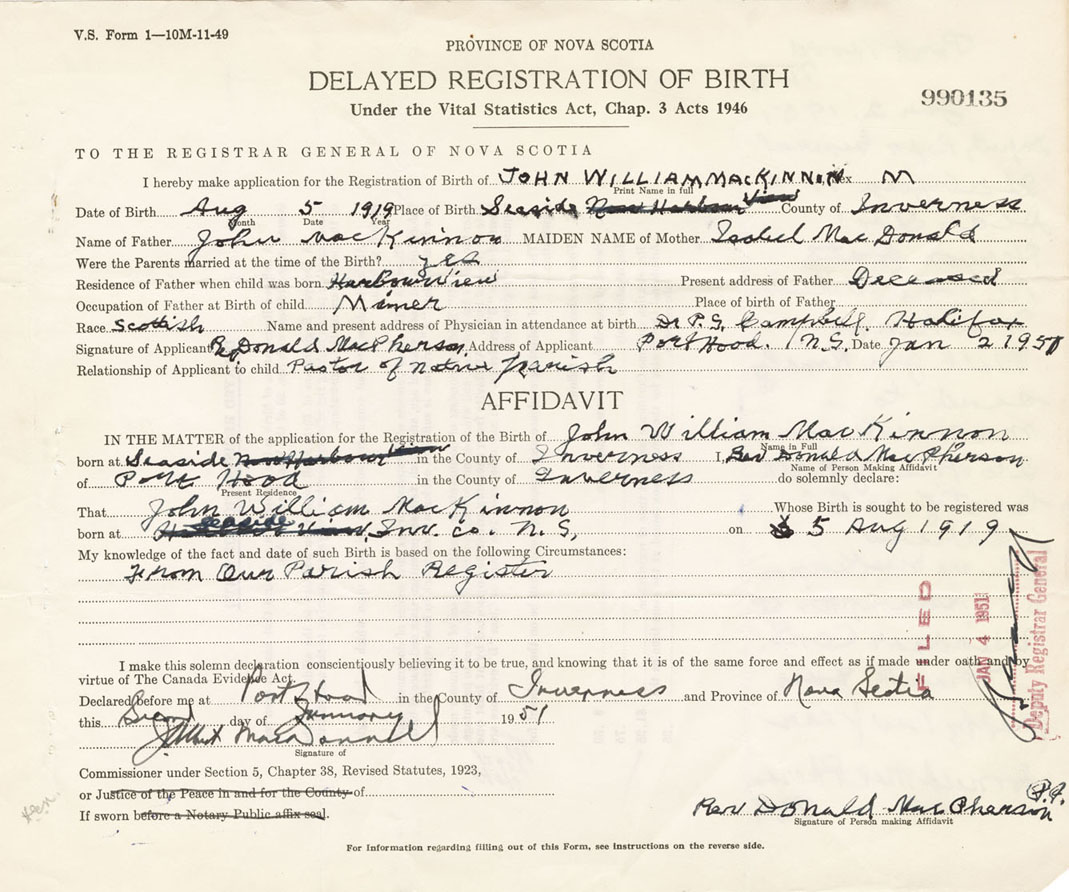 V.S. Form 1—10M-11-49
PROVINCE OF NOVA SCOTIA
DELAYED REGISTRATION OF BIRTH
990135
Under the Vital Statistics Act, Chap. 3 Acts 1946
TO THE REGISTRAR GENERAL OF NOVA SCOTIA
I hereby make application for the Registration of Birth of JOHN WILLIAM MACKINNON Sex M
Print Name in full
Date of Birth Aug 5 1919 Place of Birth Seaside New Harbour View County of Inverness
Month Date Year
Name of Father John MacKinnon MAIDEN NAME of Mother Isabel MacDonald
Were the Parents married at the time of the Birth? yes
Residence of Father when child was born Harbourview Present address of Father Deceased
Occupation of Father at Birth of child Miner Place of birth of Father
Race Scottish Name and present address of Physician in attendance at birth Dr P.S. Campbell, Halifax
Signature of Applicant Donald MacPherson Address of Applicant Port Hood. N.S. Date Jan 2 1951
Relationship of Applicant to child Pastor of Native Parish
AFFIDAVIT
IN THE MATTER of the application for the Registration of the Birth of John William MacKinnon
Name in Full
born at Seaside in the County of Inverness I, Rev Donald MacPherson
Name of Person Making Affidavit
of Port Hood in the County of Inverness do solemnly declare:
Present Residence
That John William MacKinnon Whose Birth is sought to be registered was
born at Seaside Inv. Co. N.S, on 5 Aug 1919
My knowledge of the fact and date of such Birth is based on the following Circumstances:
From Our Parish Register
I make this solemn declaration conscientiously believing it to be true, and knowing that it is of the same force and effect as if made under oath and by
virtue of The Canada Evidence Act.
Declared before me at Port Hood in the County of Inverness and Province of Nova Scotia
this Second day of January 1951
J Albert MacDonnell
Signature of
Commissioner under Section 5, Chapter 38, Revised Statutes, 1923,
or Justice of the Peace in and for the County of
If sworn before a Notary Public affix seal.
FILED
JAN 4 1951
Deputy Registrar General
Rev Donald MacPherson P.P.
Signature of Person making Affidavit
For Information regarding filling out of this Form, see instructions on the reverse side.